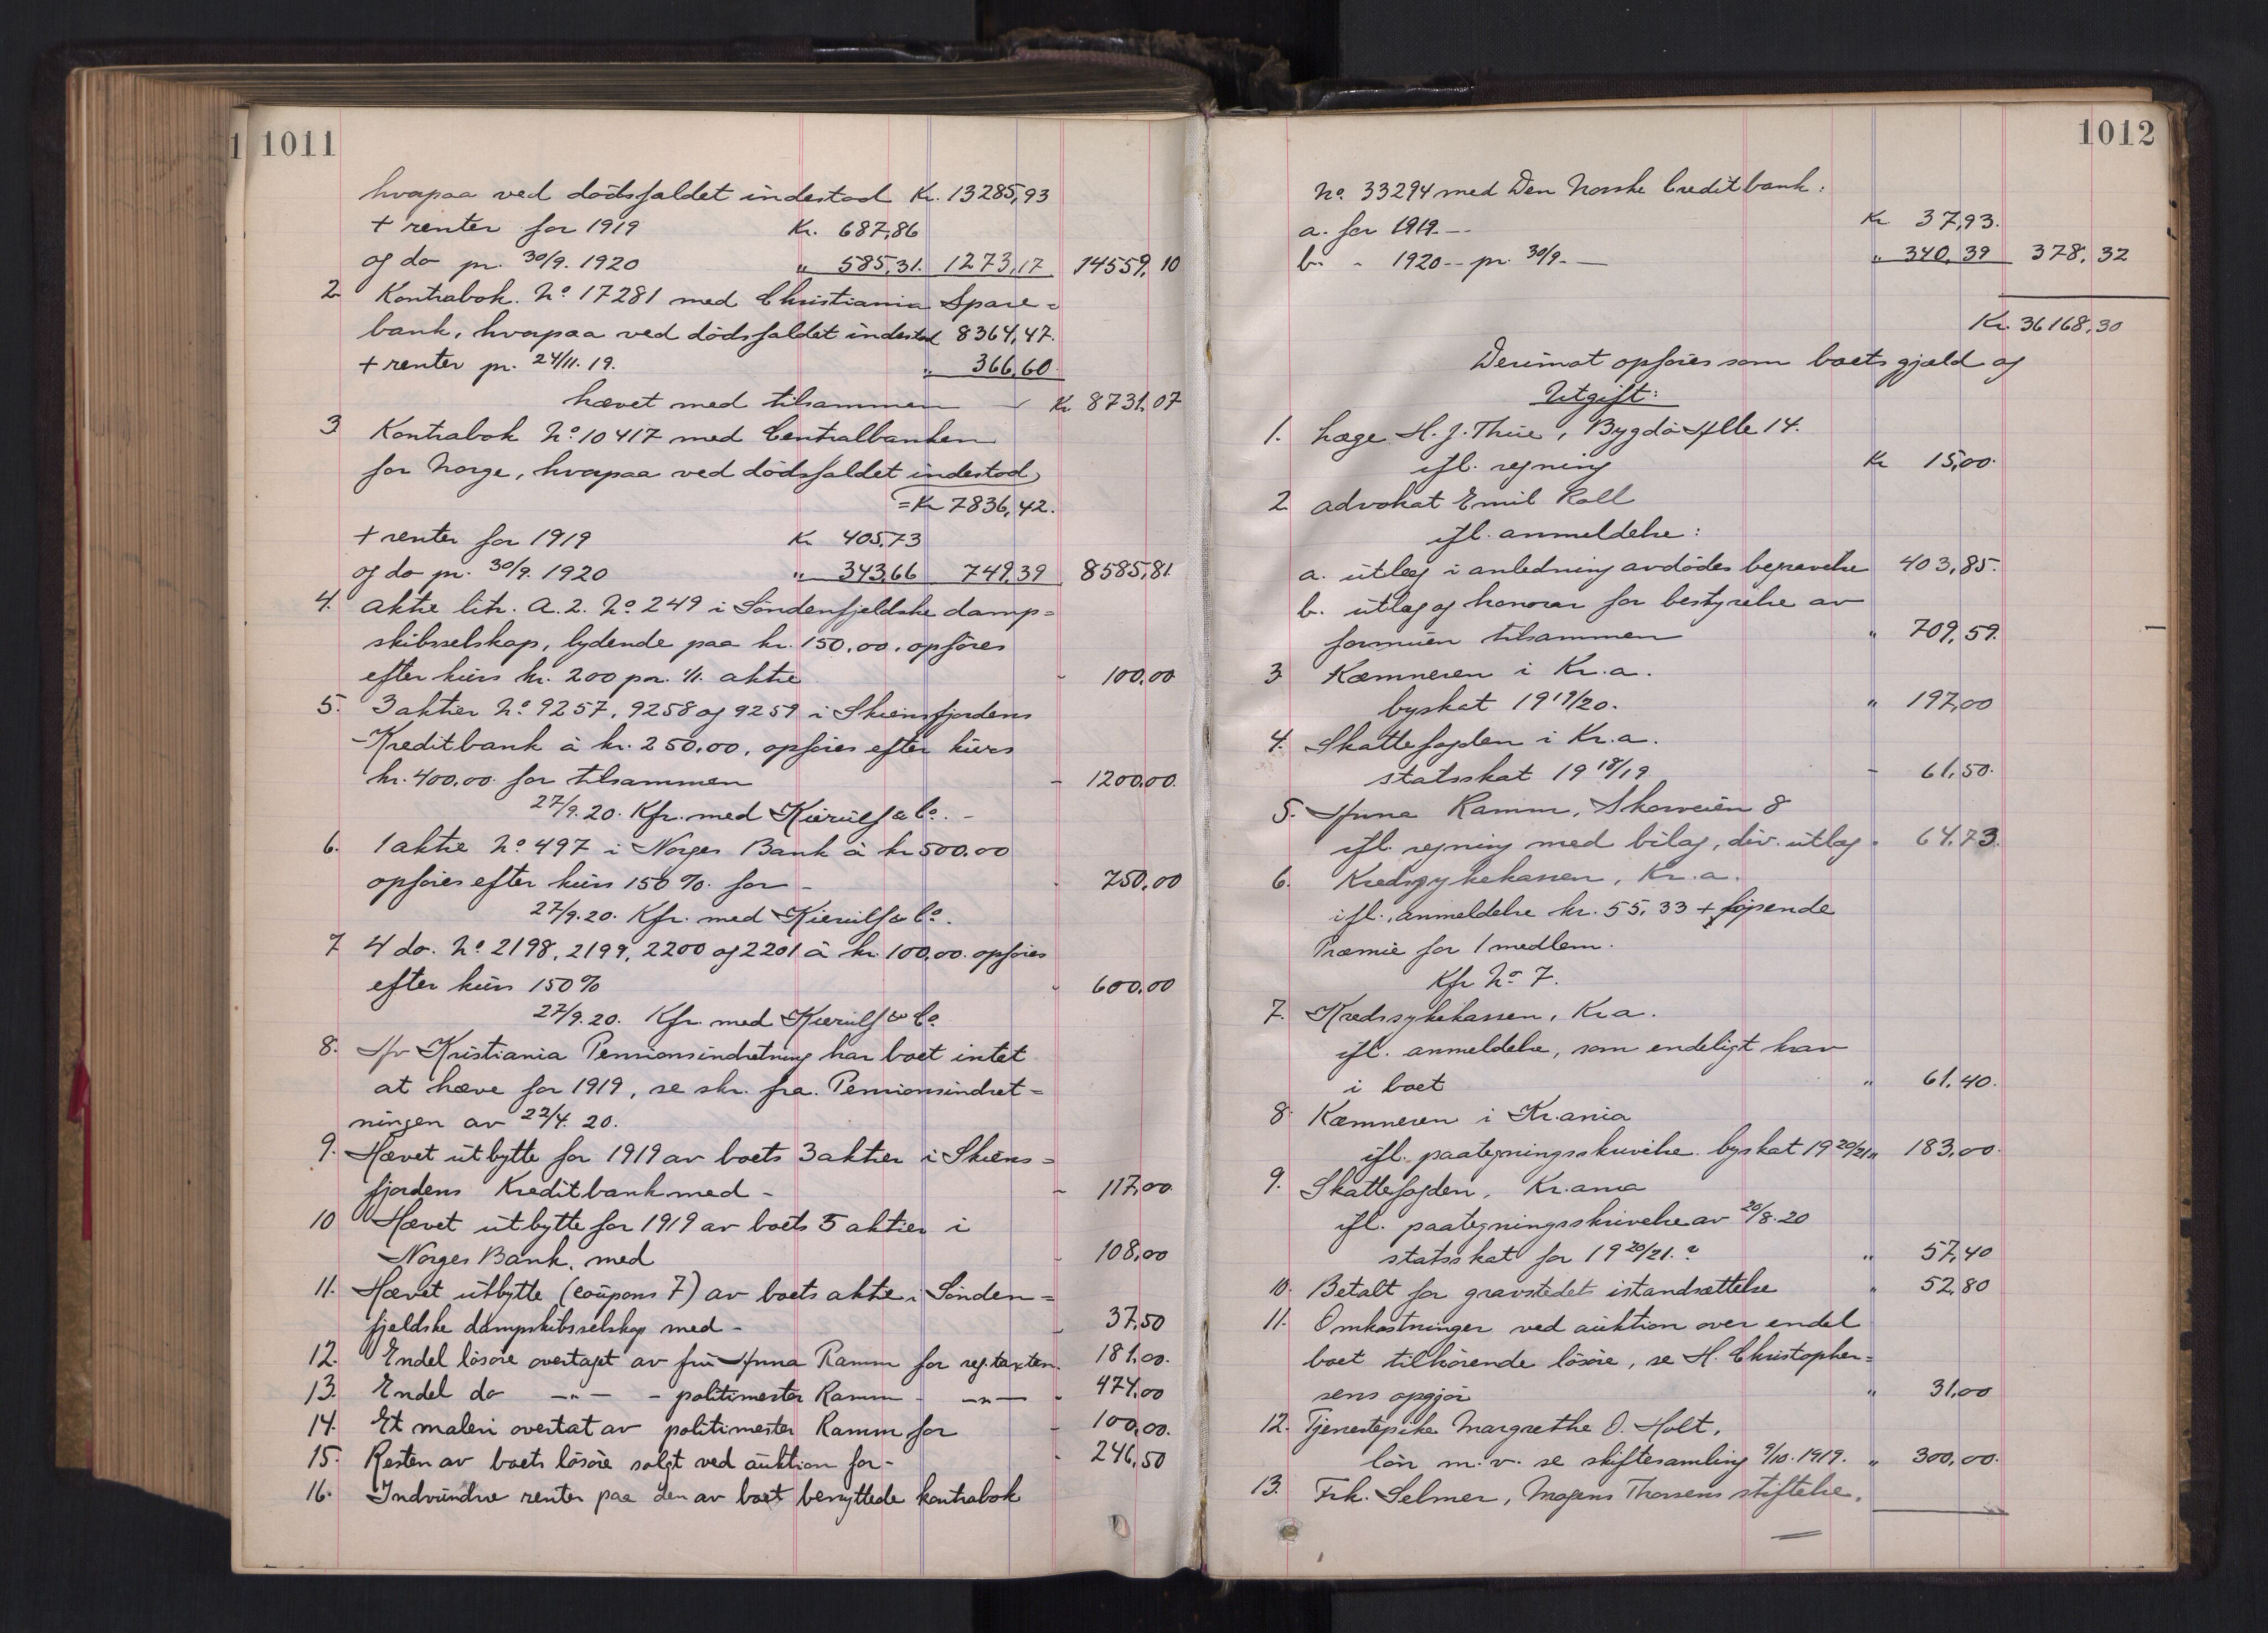 1 1011
hvorpaa ved dödsfaldet indestod Kr. 13285,93
+ renter for 1919 Kr. 687,86
og do pr. 30/9. 1920 " 585,31. 1273,17 14559,10
2 Kontrabok. No 17281 med Christiania Spare=
bank, hvorpaa ved dödsfaldet indestod 8364,47.
+ renter pr. 24/11. 19. " 366,60
hævet med tilsammen - Kr 8731,07
3 Kontrabok No 10417 med Centralbanken
for Norge, hvorpaa ved dödsfaldet indestod
= Kr 7836,42.
+ renter for 1919 Kr 405,73
og do pr. 30/9. 1920 " 343,66 749,39 8585,81.
4. Aktie litr. A. 2. No 249 i Söndenfjeldske damp=
skibsselskap, lydende paa kr. 150,00. opföres
efter kurs kr. 200 pr. 1/1. aktie - 100,00
5. 3 aktier No 9257, 9258 og 9259 i Skiensfjordens
Kreditbank à kr. 250,00, opföres efter kurs
kr. 400,00. for tilsammen - 1200,00.
27/9. 20. Kfr. med Kierulf & Co. -
6. 1 aktie No 497 i Norges Bank à kr 500.00
opföres efter kurs 150 %. for - - 750,00
27/9. 20. Kfr. med Kierulf & Co.
7 4 do. No 2198, 2199, 2200 og 2201 à kr. 100,00. opföres
efter kurs 150 % - 600,00
27/9. 20. Kfr. med Kierulf & Co.
8. Av Kristiania Pensionsindretning har boet intet
at hæve for 1919, se skr. fra. Pensionsindret=
ningen av 22/4. 20.
9. Hævet utbytte for 1919 av boets 3 aktier i Skiens=
fjordens Kreditbank med - - 117,00
10 Hævet utbytte for 1919 av boets 5 aktier i
Norges Bank, med - 108,00
11. Hævet utbytte (coupons 7) av boets aktie i Sönden=
fjeldske dampskibsselskap med - - 37,50
12. Endel lösöre overtaget av fru Anna Ramm for reg. taxten. 181,00.
13. Endel do -"- - politimester Ramm -"- - 474,00
14. Et maleri overtat av politimester Ramm for - 100,00.
15. Resten av boets lösöre solgt ved auktion for - - 246,50
16. Indvundne renter paa den av boet benyttede kontrabok
1012
No. 33294 med Den Norske Creditbank:
a. for 1919. -- Kr 37,93.
b. - 1920 -- pr. 30/9. -- " 340,39 378,32
Kr. 36168,30
Derimot opföres som boets gjæld og
Utgift:
1. Læge H. J. Thue, Bygdö Alle 14.
ifl. regning Kr 15,00.
2 Advokat Emil Roll
ifl. anmeldelse:
a. utlæg i anledning avdödes begravelse 403,85.
b. utlæg og honorar for bestyrelse av
formuen tilsammen " 709,59.
3 Kæmneren i Kr.a.
byskat 1919/20. " 197,00
4. Skattefogden i Kr.a.
statsskat 1918/19 - 61,50.
5. Anna Ramm, Skovveien 8
ifl. regning med bilag, div. utlæg - 64,73.
6. Kredssykekassen, Kr.a.
ifl. anmeldelse kr. 55,33 + löpende
Præmie for 1 medlem.
Kfr No 7.
7. Kredssykekassen, Kr.a.
ifl. anmeldelse, som endeligt krav
i boet " 61,40.
8. Kæmneren i Kr.ania
ifl. paategningsskrivelse byskat 1920/21 " 183,00.
9. Skattefogden, Kr.ania
ifl. paategningsskrivelse av 20/8. 20
statsskat for 1920/21. ? " 57,40
10. Betalt for gravstedets istandsættelse " 52,80
11. Omkostninger ved auktion over endel
boet tilhörende lösöre, se H. Christopher=
sens opgjör " 31,00
12. Tjenestepike Margrethe O. Holt,
lön m. v. se skiftesamling 9/10. 1919. " 300,00.
13. Frk. Selmer, Mogens Thorsens stiftelse.